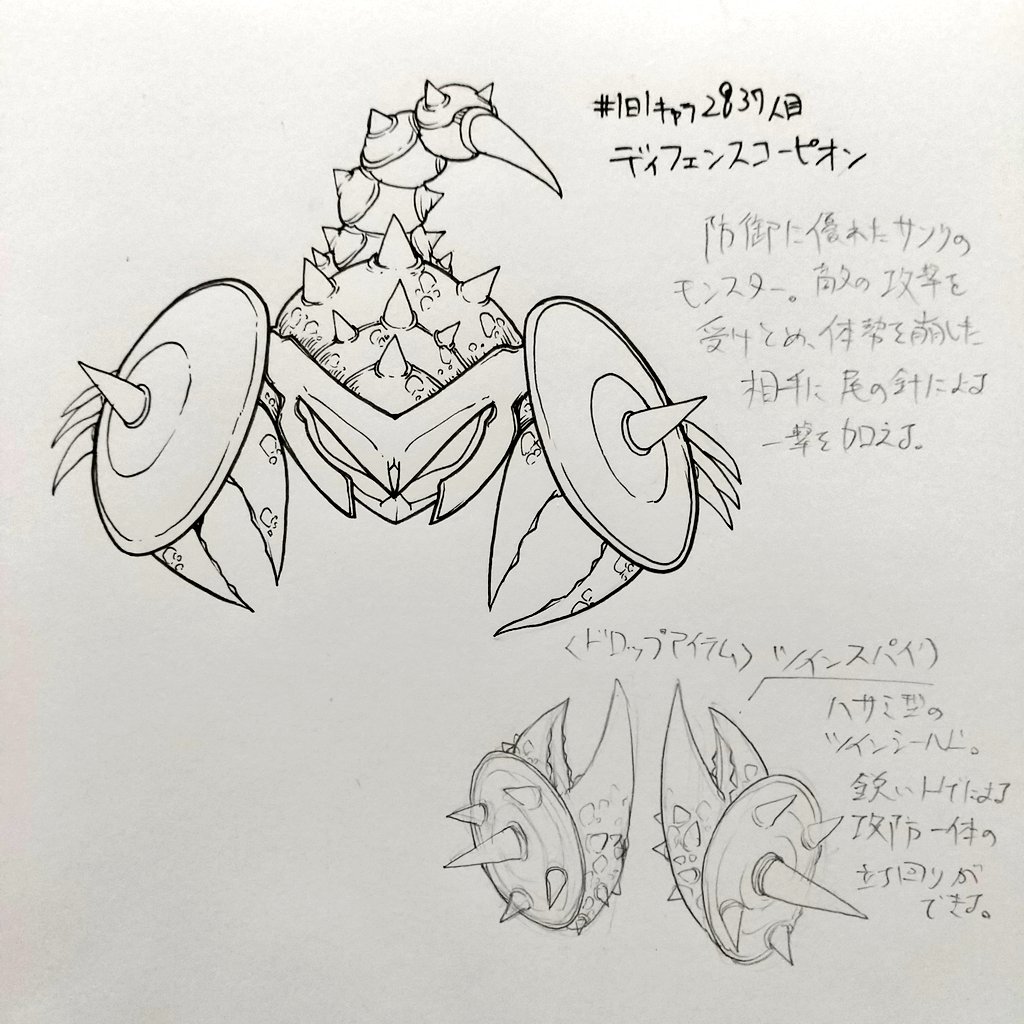 #1日1キャラ2837人目
ディフェンスコーピオン
防御に優れたサソリの
モンスター。敵の攻撃を
受けとめ、体勢を崩した
相手に尾の針による
一撃を加える。
〈ドロップアイテム〉ツインスパイク
ハサミ型の
ツインシールド。
鋭いトゲによる
攻防一体の
立ち回りが
できる。